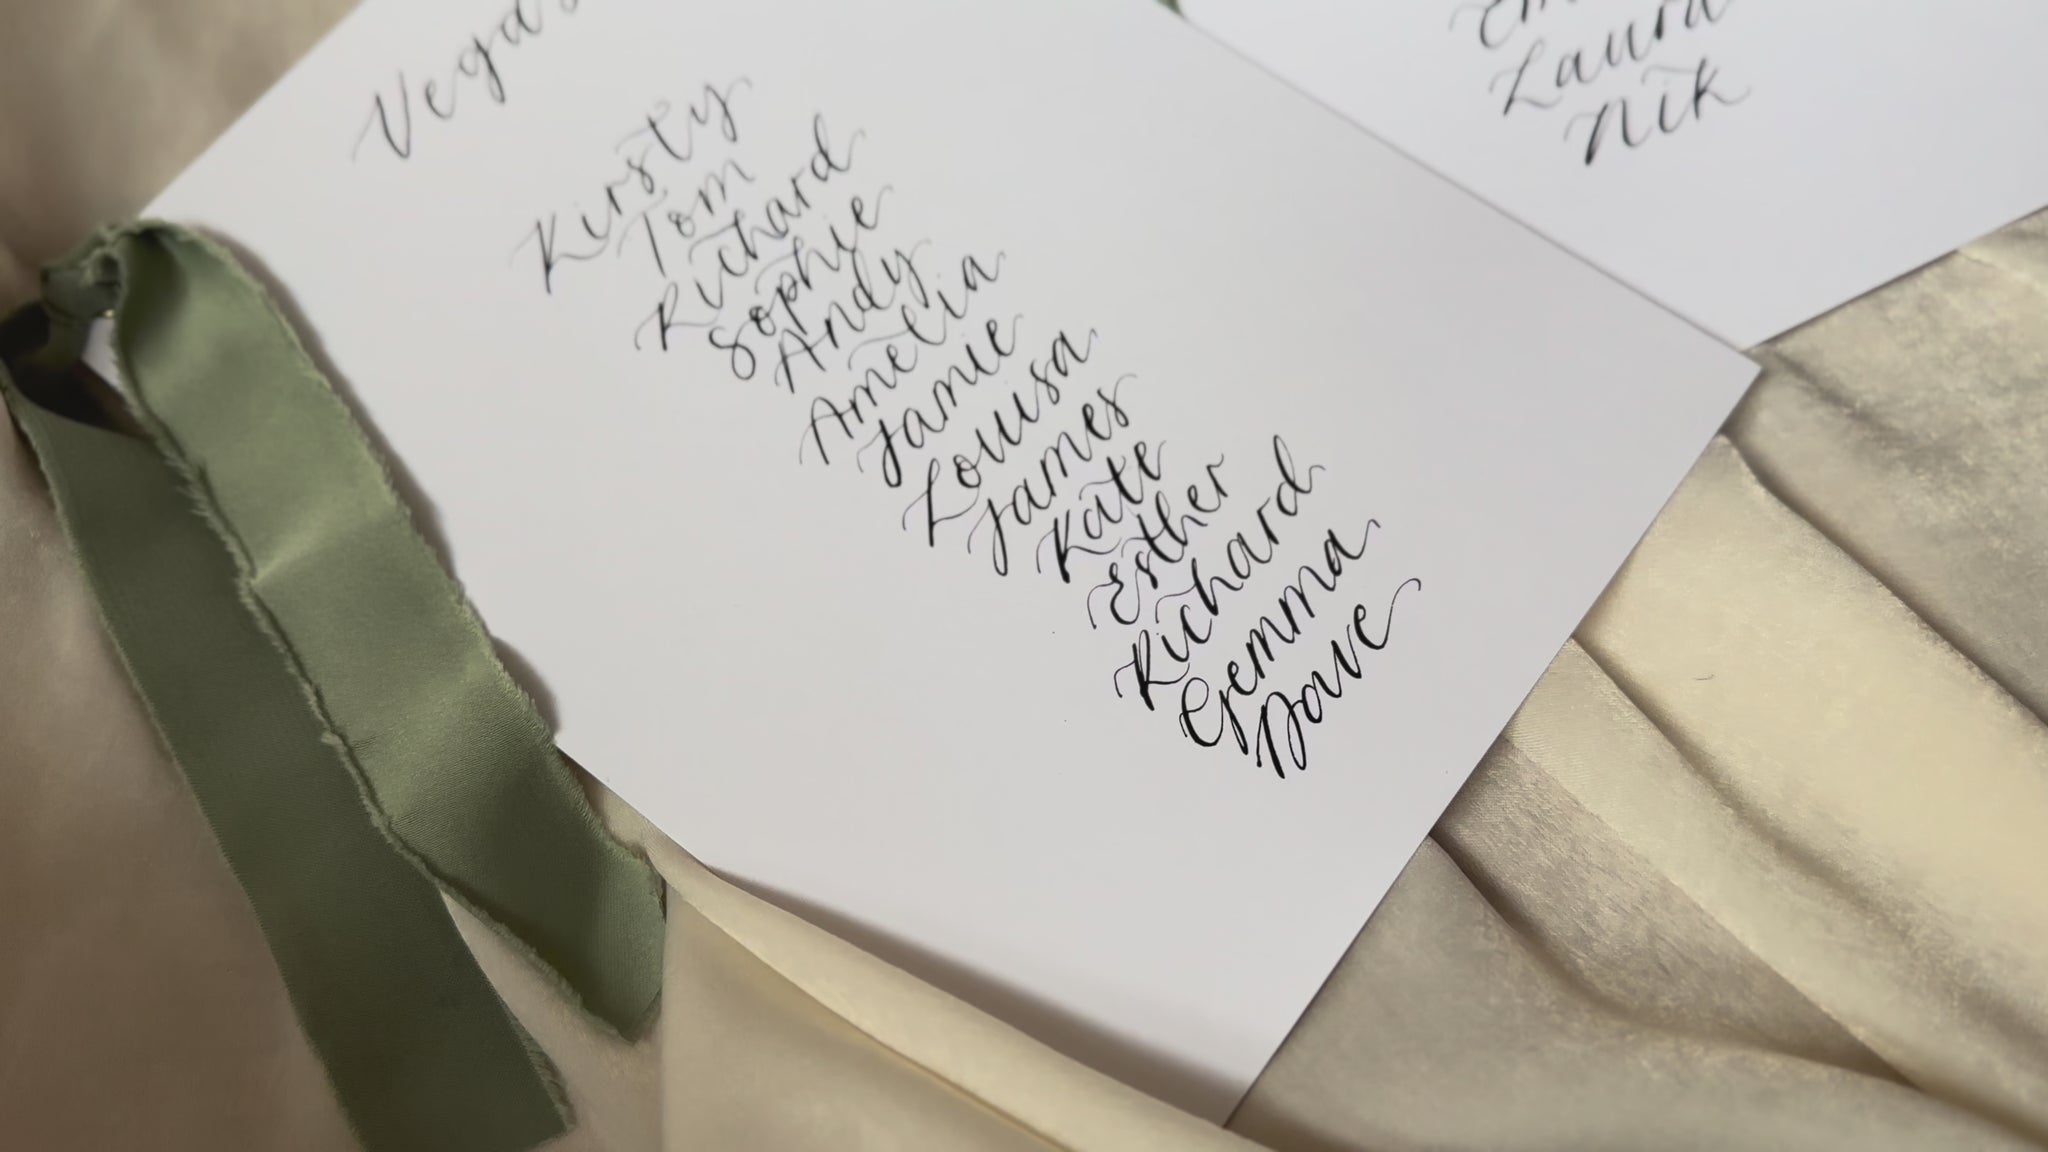 Vegas
Kirsty
Tom
Richard
Sophie
Andy
Amelia
Jamie
Louisa
James
Kate
Esther
Richard
Gemma
Dave
Laura
Nik